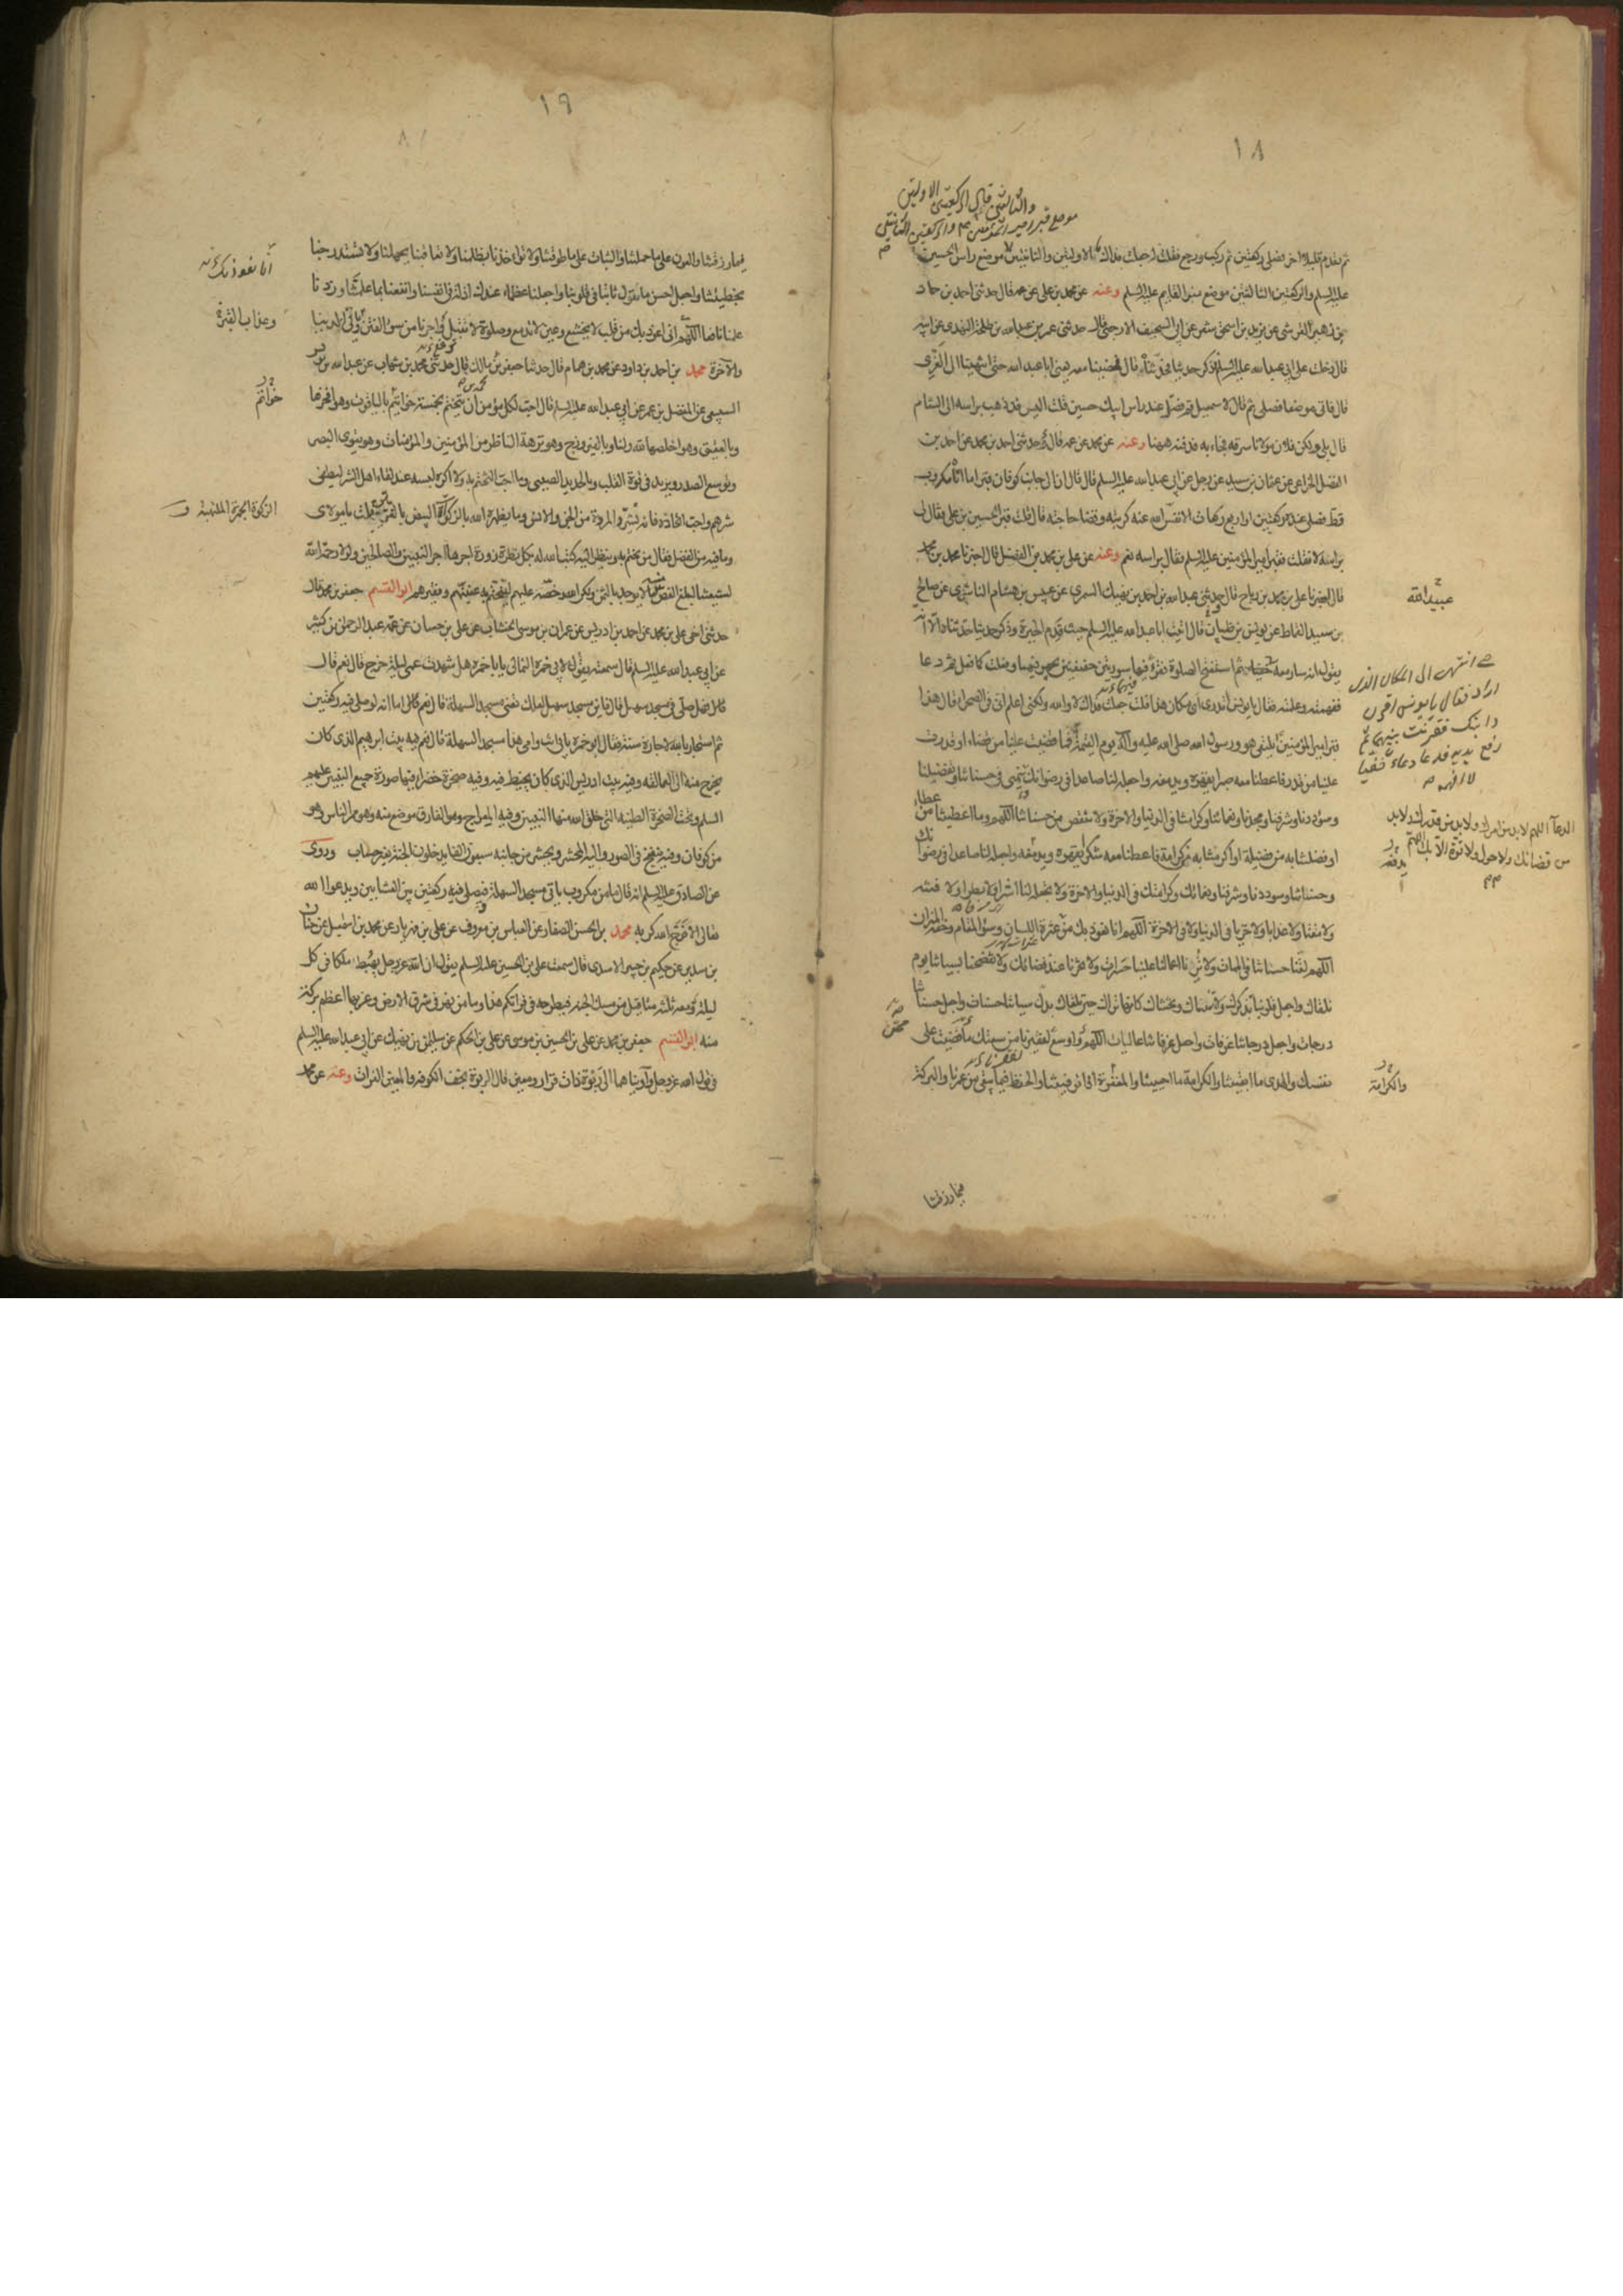 ١٨
والثانيتين قال الركعتين الاولتين
موضع قبر امير المؤمنين ع م والركعتين الثانيتين
ثم تقدم قليلا اخر فصلى ركعتين ثم ركب ورجع فقلت له جعلت فداك ما الاولتين والثانيتين موضع راس الحسين
عليه السلم والركعتين الثالثتين موضع منبر القايم عليه السلم وعنه عن محمد بن على عن عمه قال حدثنى احمد بن حماد
بن زهير القرشى عن يزيد بن اسحق شعر عن ابى السخيف الارجنى قال حدثنى عمر بن عبد الله بن طلحة النهدى عن ابيه
قال دخلت على ابى عبد الله عليه السلم فذكر حديثا فحدثناه قال فمضينا معه يعنى ابا عبد الله حتى انتهينا الى الغرى
قال فاتى موضعا فصلى ثم قال لاسمعيل قم فصل عند راس ابيك حسين قلت اليس قد ذهب براسه الى الشام
قال بلى ولكن فلان مولانا سرقه فجاء به فدفنه ههنا وعنه عن محمد عن عمه قال حدثنى احمد بن محمد عن احمد بن
الفضل الخزاعى عن عثمان بن سعيد عن رجل عن ابى عبد الله عليه السلم قال قال ان الى جانب كوفان قبرا ما اتاه مكروب
قط فصلى عنده ركعتين او اربع ركعات الا نفس الله عنه كربته وقضا حاجته قال قلت قبر الحسين بن على فقال لى
براسه لا فقلت فقبر امير المؤمنين عليه السلم فقال براسه نعم وعنه عن على بن محمد بن الفضل قال اخبرنا محمد بن محمد
قال اخبرنا على بن محمد بن رياح قال حدثنى عبد الله بن احمد بن نهيك السمرى عن عبيس بن هشام الناشرى عن صالح
عبيد الله
بن سعيد القماط عن يونس بن ظبيان قال اتيت ابا عبد الله عليه السلم حيث قدم الحيرة وذكر حديثا حدثناه الا انه
يقول انه سار معه
حتى انتهى الى المكان الذى
اراد فقال يا يونس اقرن
دابتك فقرنت بينهما ثم
رفع يديه فدعا دعاء خفيا
لا افهمه
ثم استفتح الصلوة فقرأ فيها سورتين خفيفتين يجهر فيهما وفعلت كما فعل ثم دعا
ففهمته وعلمته فقال يا يونس اتدرى اى مكان هذا قلت جعلت فداك لا والله ولكنى اعلم انى فى الصحراء قال هذا
قبر امير المؤمنين يلتقى هو ورسول الله صلى الله عليه واله يوم القيمة
الدعآ اللهم لابد من امرك ولابد من قدرك ولابد
من قضائك ولا حول ولا قوة الا بك اللهم
فما قضيت علينا من قضاء او قدرت
علينا من قدر فاعطنا معه صبرا يقهره ويدمغه واجعله لنا صاعدا فى رضوانك ينمى فى حسناتنا وتفضيلنا
وسؤددنا وشرفنا ومجدنا ونعمائنا وكرامتنا فى الدنيا والاخرة ولا تنقص من حسناتنا اللهم وما اعطيتنا من عطاء
او فضلتنا به من فضيلة او اكرمتنا به من كرامة فاعطنا معه شكرا يقهره ويدمغه واجعله لنا صاعدا فى رضوانك
وحسناتنا وسؤددنا وشرفنا ونعمائك وكرامتك فى الدنيا والاخرة ولا تجعله لنا اشرا ولا بطرا ولا فتنة
ولا مقتا ولا عذابا ولا خزيا فى الدنيا ولا فى الاخرة اللهم انا نعوذ بك من عثرة اللسان وسوء المقام وخفة الميزان
اللهم لقنا حسناتنا فى الممات ولا ترنا اعمالنا علينا حسرات ولا تخزنا عند قضائك ولا تفضحنا بسيئاتنا يوم
نلقاك واجعل قلوبنا تذكرك ولا تنساك وتخشاك كانها تراك حتى تلقاك بدل سيئاتنا حسنات واجعل حسناتنا
درجات واجعل درجاتنا غرفات واجعل غرفاتنا عاليات اللهم واوسع لفقيرنا من سعتك ما قضيت على
نفسك والهدى ما ابقيتنا والكرامة ما احييتنا والمغفرة اذا توفيتنا والحفظ فيما يبقى من عمرنا والبركة
والكرامة
فيما رزقتنا
١٩
فيما رزقتنا والعون على ما حملتنا والثبات على ما طوقتنا ولا تؤاخذنا بظلمنا ولا تعاقبنا بجهلنا ولا تستدرجنا
بخطيئتنا واجعل احسن ما نقول ثابتا فى قلوبنا واجعلنا عظماء عندك اذلة فى انفسنا وانفعنا بما علمتنا وزدنا
انا نعوذ بك
علما نافعا اللهم انى اعوذ بك من قلب لا يخشع وعين لا تدمع وصلوة لا تقبل اجرنا من سوء الفتن يا ولى الدنيا
وعذاب القبر
والاخرة محمد بن احمد بن داود عن محمد بن همام قال حدثنا جعفر بن مالك قال حدثنى محمد بن شهاب عن عبد الله بن يونس
السبيعى عن المفضل بن عمر عن ابى عبد الله عليه السلم قال احب لكل مؤمن ان يتختم بخمسة خواتيم بالياقوت وهو افخرها
خواتم
وبالعقيق وهو اخلصها لله ولنا وبالفيروزج وهو نزهة الناظر من المؤمنين والمؤمنات وهو يقوى البصر
ويوسع الصدر ويزيد فى قوة القلب وبالحديد الصينى وما احب التختم به ولا اكره لبسه عند لقاء اهل الشر ليطفى
شرهم واحب اتخاذه فانه يشرد المردة من الجن والانس وما يظهره الله بالذكوات البيض بالغريين قلت يا مولاى
وما فيه من الفضل فقال من تختم به وينظر اليه كتب الله له بكل نظرة زورة اجرها اجر النبيين والصالحين ولولا رحمة الله
لشيعتنا لبلغ الفص منه ما لا يوجد بالثمن ولكن الله رخصه عليهم ليتختم به غنيهم وفقيرهم ابو القسم جعفر بن محمد قال
حدثنى اخى على بن محمد عن احمد بن ادريس عن عمران بن موسى الخشاب عن على بن حسان عن عمه عبد الرحمن بن كثير
عن ابى عبد الله عليه السلم قال سمعته يقول لابى حمزة الثمالى يا با حمزة هل شهدت عمى ليلة خرج قال نعم قال
فهل صلى فى مسجد سهيل قال واين مسجد سهيل لعلك تعنى مسجد السهلة قال نعم قال اما انه لو صلى فيه ركعتين
ثم استجار بالله لاجاره سنة فقال ابو حمزة بابى انت وامى هذا مسجد السهلة قال نعم فيه بيت ابرهيم الذى كان
يخرج منه الى العمالقة وفيه بيت ادريس الذى كان يخيط فيه وفيه صخرة خضراء فيها صورة جميع النبيين عليهم
السلم وتحت الصخرة الطينة التى خلق الله منها النبيين وفيه المعراج وهو الفاروق موضع منه وهو ممر الناس وهو
من كوفان وفيه ينفخ فى الصور واليه المحشر ويحشر من جانبه سبعون الفا يدخلون الجنة بغير حساب وروى
عن الصادق عليه السلم انه قال ما من مكروب ياتى مسجد السهلة فيصلى فيه ركعتين بين العشائين ويدعو الله
تعالى الا فرج الله كربه محمد بن الحسن الصفار عن العباس بن معروف عن على بن مهزيار عن محمد بن اسمعيل عن حنان
بن سدير عن حكيم بن جبير الاسدى قال سمعت على بن الحسين عليه السلم يقول ان الله عز وجل يهبط ملكا فى كل
ليلة ومعه ثلثة مثاقيل من مسك الجنة فيطرحه فى فراتكم هذا وما من نهر فى شرق الارض وغربها اعظم بركة
منه ابو القسم جعفر بن محمد عن على بن الحسين بن موسى عن على بن الحكم عن سليمان بن نهيك عن ابى عبد الله عليه السلم
فى قول الله عز وجل وآويناهما الى ربوة ذات قرار ومعين قال الربوة نجف الكوفة والمعين الفرات وعنه عن محمد